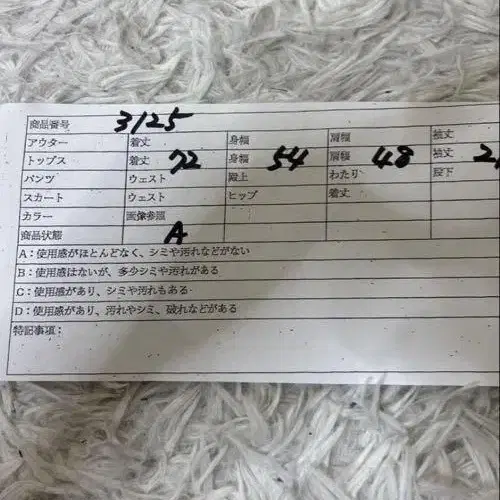 商品番号 3125
アウター 着丈 身幅 肩幅 袖丈
トップス 着丈 72 身幅 54 肩幅 48 袖丈
パンツ ウェスト 股上 わたり 股下
スカート ウェスト ヒップ 着丈
カラー 画像参照
商品状態 A
A：使用感がほとんどなく、シミや汚れなどがない
B：使用感はないが、多少シミや汚れがある
C：使用感があり、シミや汚れもある
D：使用感があり、汚れやシミ、破れなどがある
特記事項：